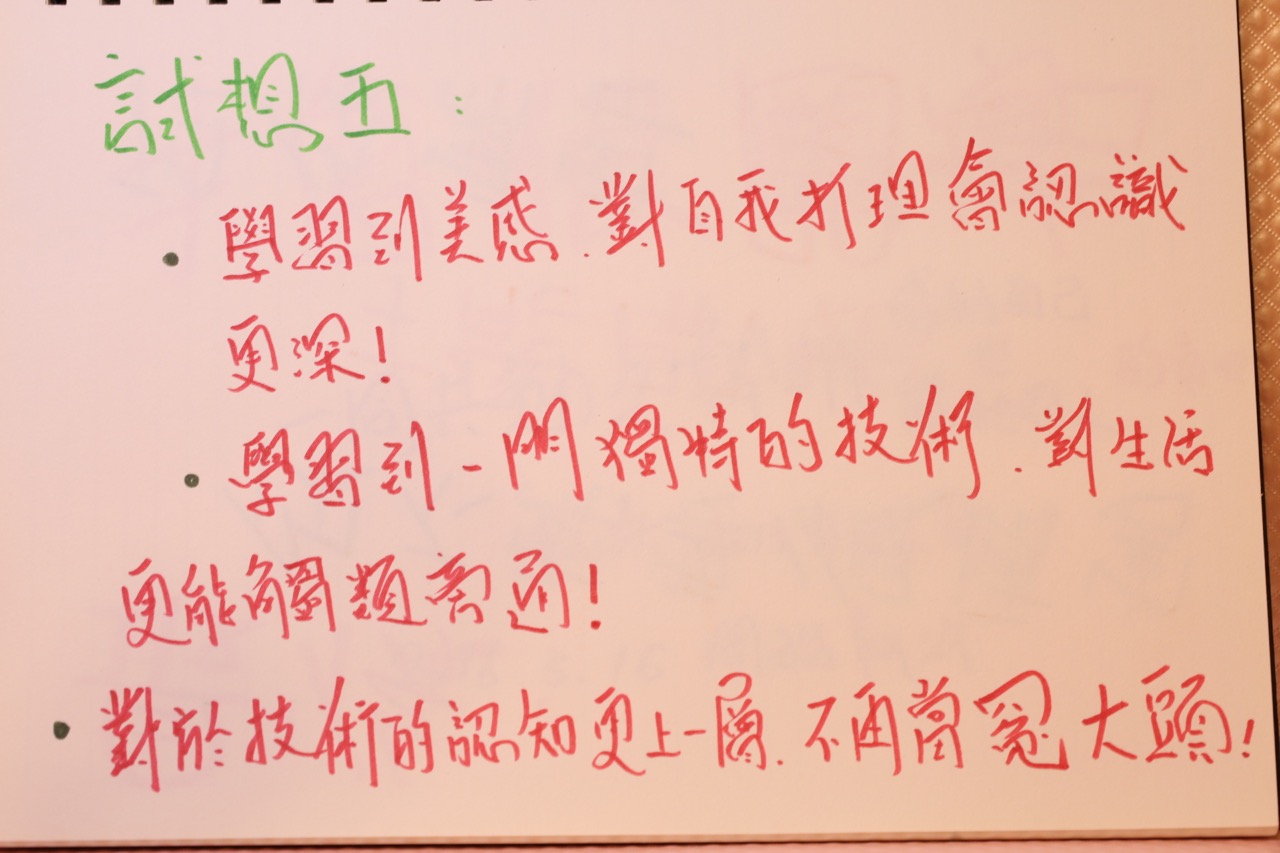 試想五：
• 學習到美感.對自我打理會認識
更深！
• 學習到一門獨特的技術.對生活
更能觸類旁通！
• 對於技術的認知更上一層.不再當冤大頭！